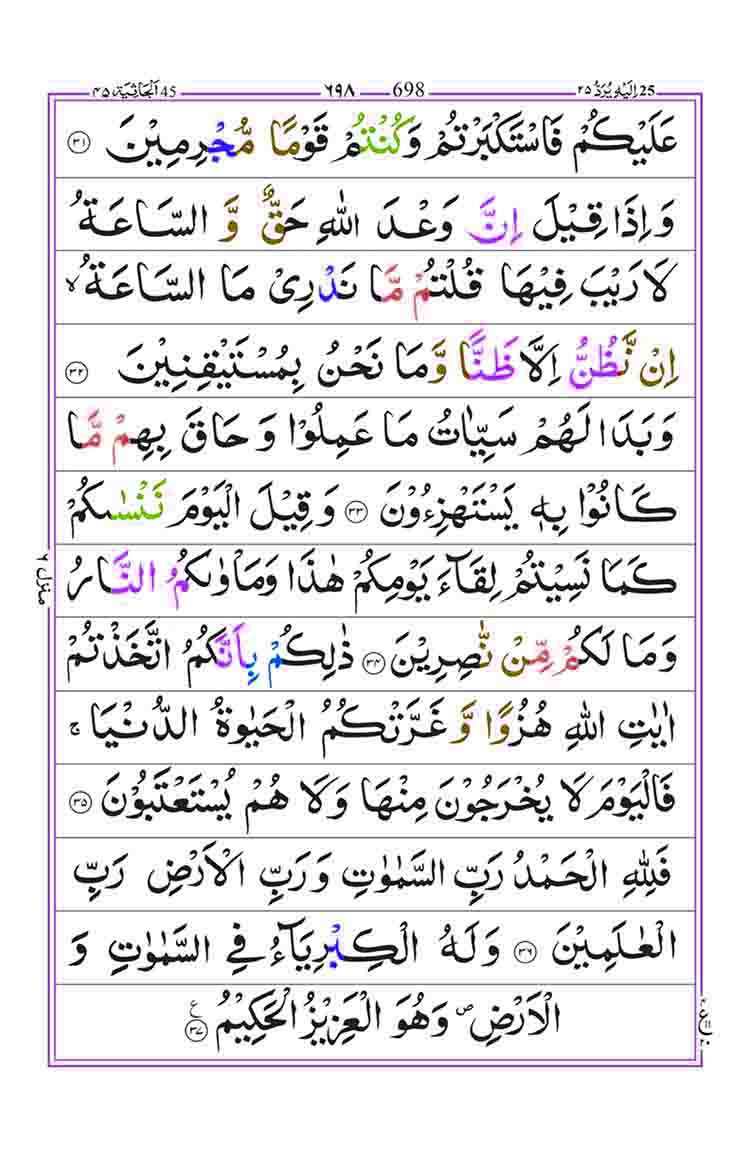 اِلَيْهِ يُرَدُّ ٢٥ 25 ٦٩٨ 698 اَلْجَاثِيَة ٤٥ 45
عَلَيْكُمْ فَاسْتَكْبَرْتُمْ وَكُنْتُمْ قَوْمًا مُّجْرِمِيْنَ ٣١
وَاِذَا قِيْلَ اِنَّ وَعْدَ اللّٰهِ حَقٌّ وَّ السَّاعَةُ
لَا رَيْبَ فِيْهَا قُلْتُمْ مَّا نَدْرِىْ مَا السَّاعَةُ ۙ
اِنْ نَّظُنُّ اِلَّا ظَنًّا وَّ مَا نَحْنُ بِمُسْتَيْقِنِيْنَ ٣٢
وَبَدَا لَهُمْ سَيِّاٰتُ مَا عَمِلُوْا وَ حَاقَ بِهِمْ مَّا
كَانُوْا بِهٖ يَسْتَهْزِءُوْنَ ٣٣ وَ قِيْلَ الْيَوْمَ نَنْسٰىكُمْ
كَمَا نَسِيْتُمْ لِقَآءَ يَوْمِكُمْ هٰذَا وَمَاْوٰىكُمُ النَّارُ
وَمَا لَكُمْ مِّنْ نّٰصِرِيْنَ ٣٤ ذٰلِكُمْ بِاَنَّكُمُ اتَّخَذْتُمْ
اٰيٰتِ اللّٰهِ هُزُوًا وَّ غَرَّتْكُمُ الْحَيٰوةُ الدُّنْيَا ۚ
فَالْيَوْمَ لَا يُخْرَجُوْنَ مِنْهَا وَلَا هُمْ يُسْتَعْتَبُوْنَ ٣٥
فَلِلّٰهِ الْحَمْدُ رَبِّ السَّمٰوٰتِ وَ رَبِّ الْاَرْضِ رَبِّ
الْعٰلَمِيْنَ ٣٦ وَلَهُ الْكِبْرِيَآءُ فِى السَّمٰوٰتِ وَ
الْاَرْضِ ۪ وَهُوَ الْعَزِيْزُ الْحَكِيْمُ ٣٧ ع
منزل ٦